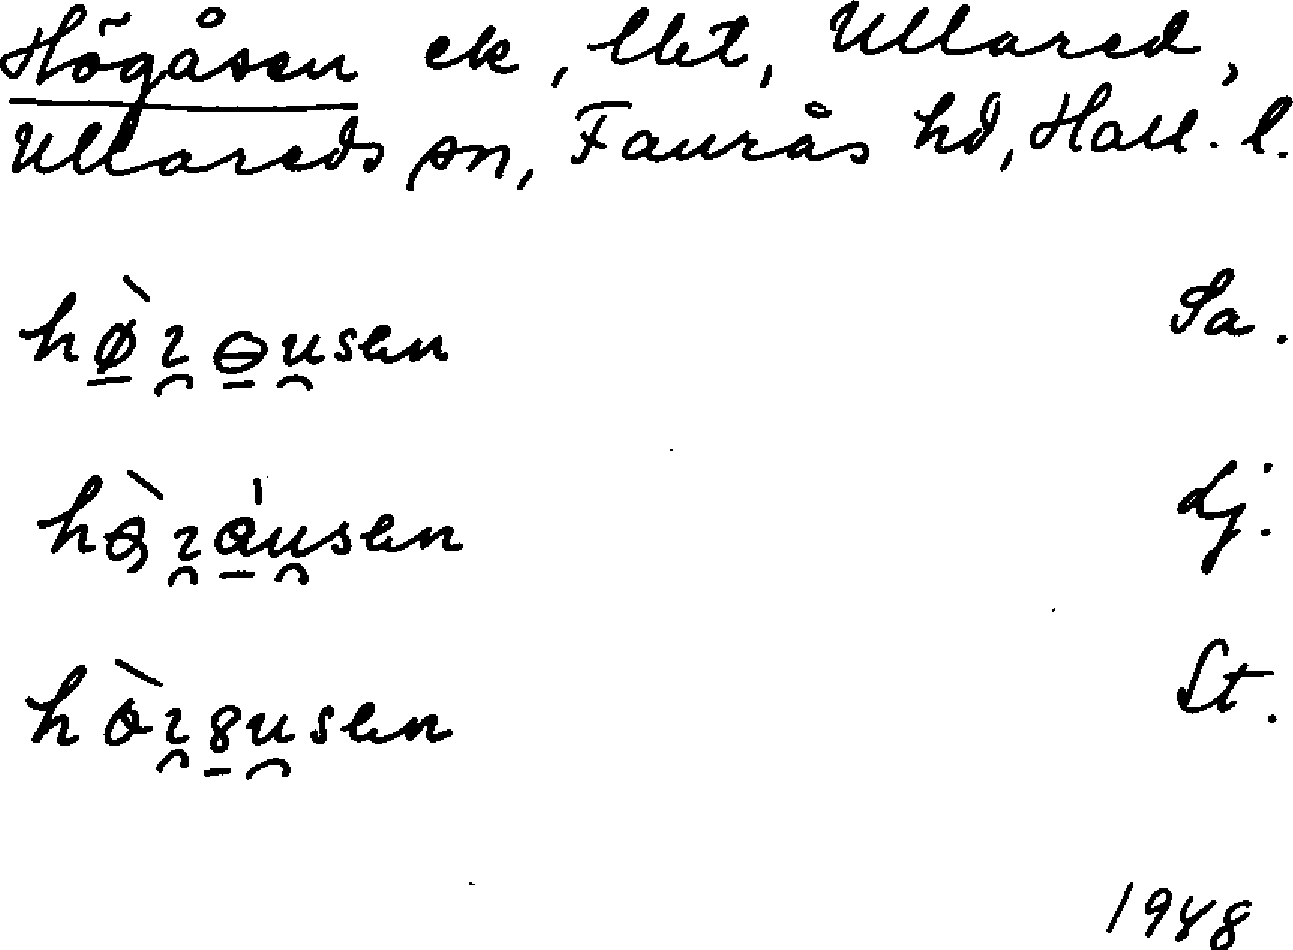 Högåsen ek, lht, Ullared,
Ullareds sn, Faurås hd, Hall. l.
hø̱̀ɿ̯ɵ̱u̯sen Sa.
hɿ̯a̱̍u̯sen Lj.
hòɿ̯8̱u̯sen St.
1948